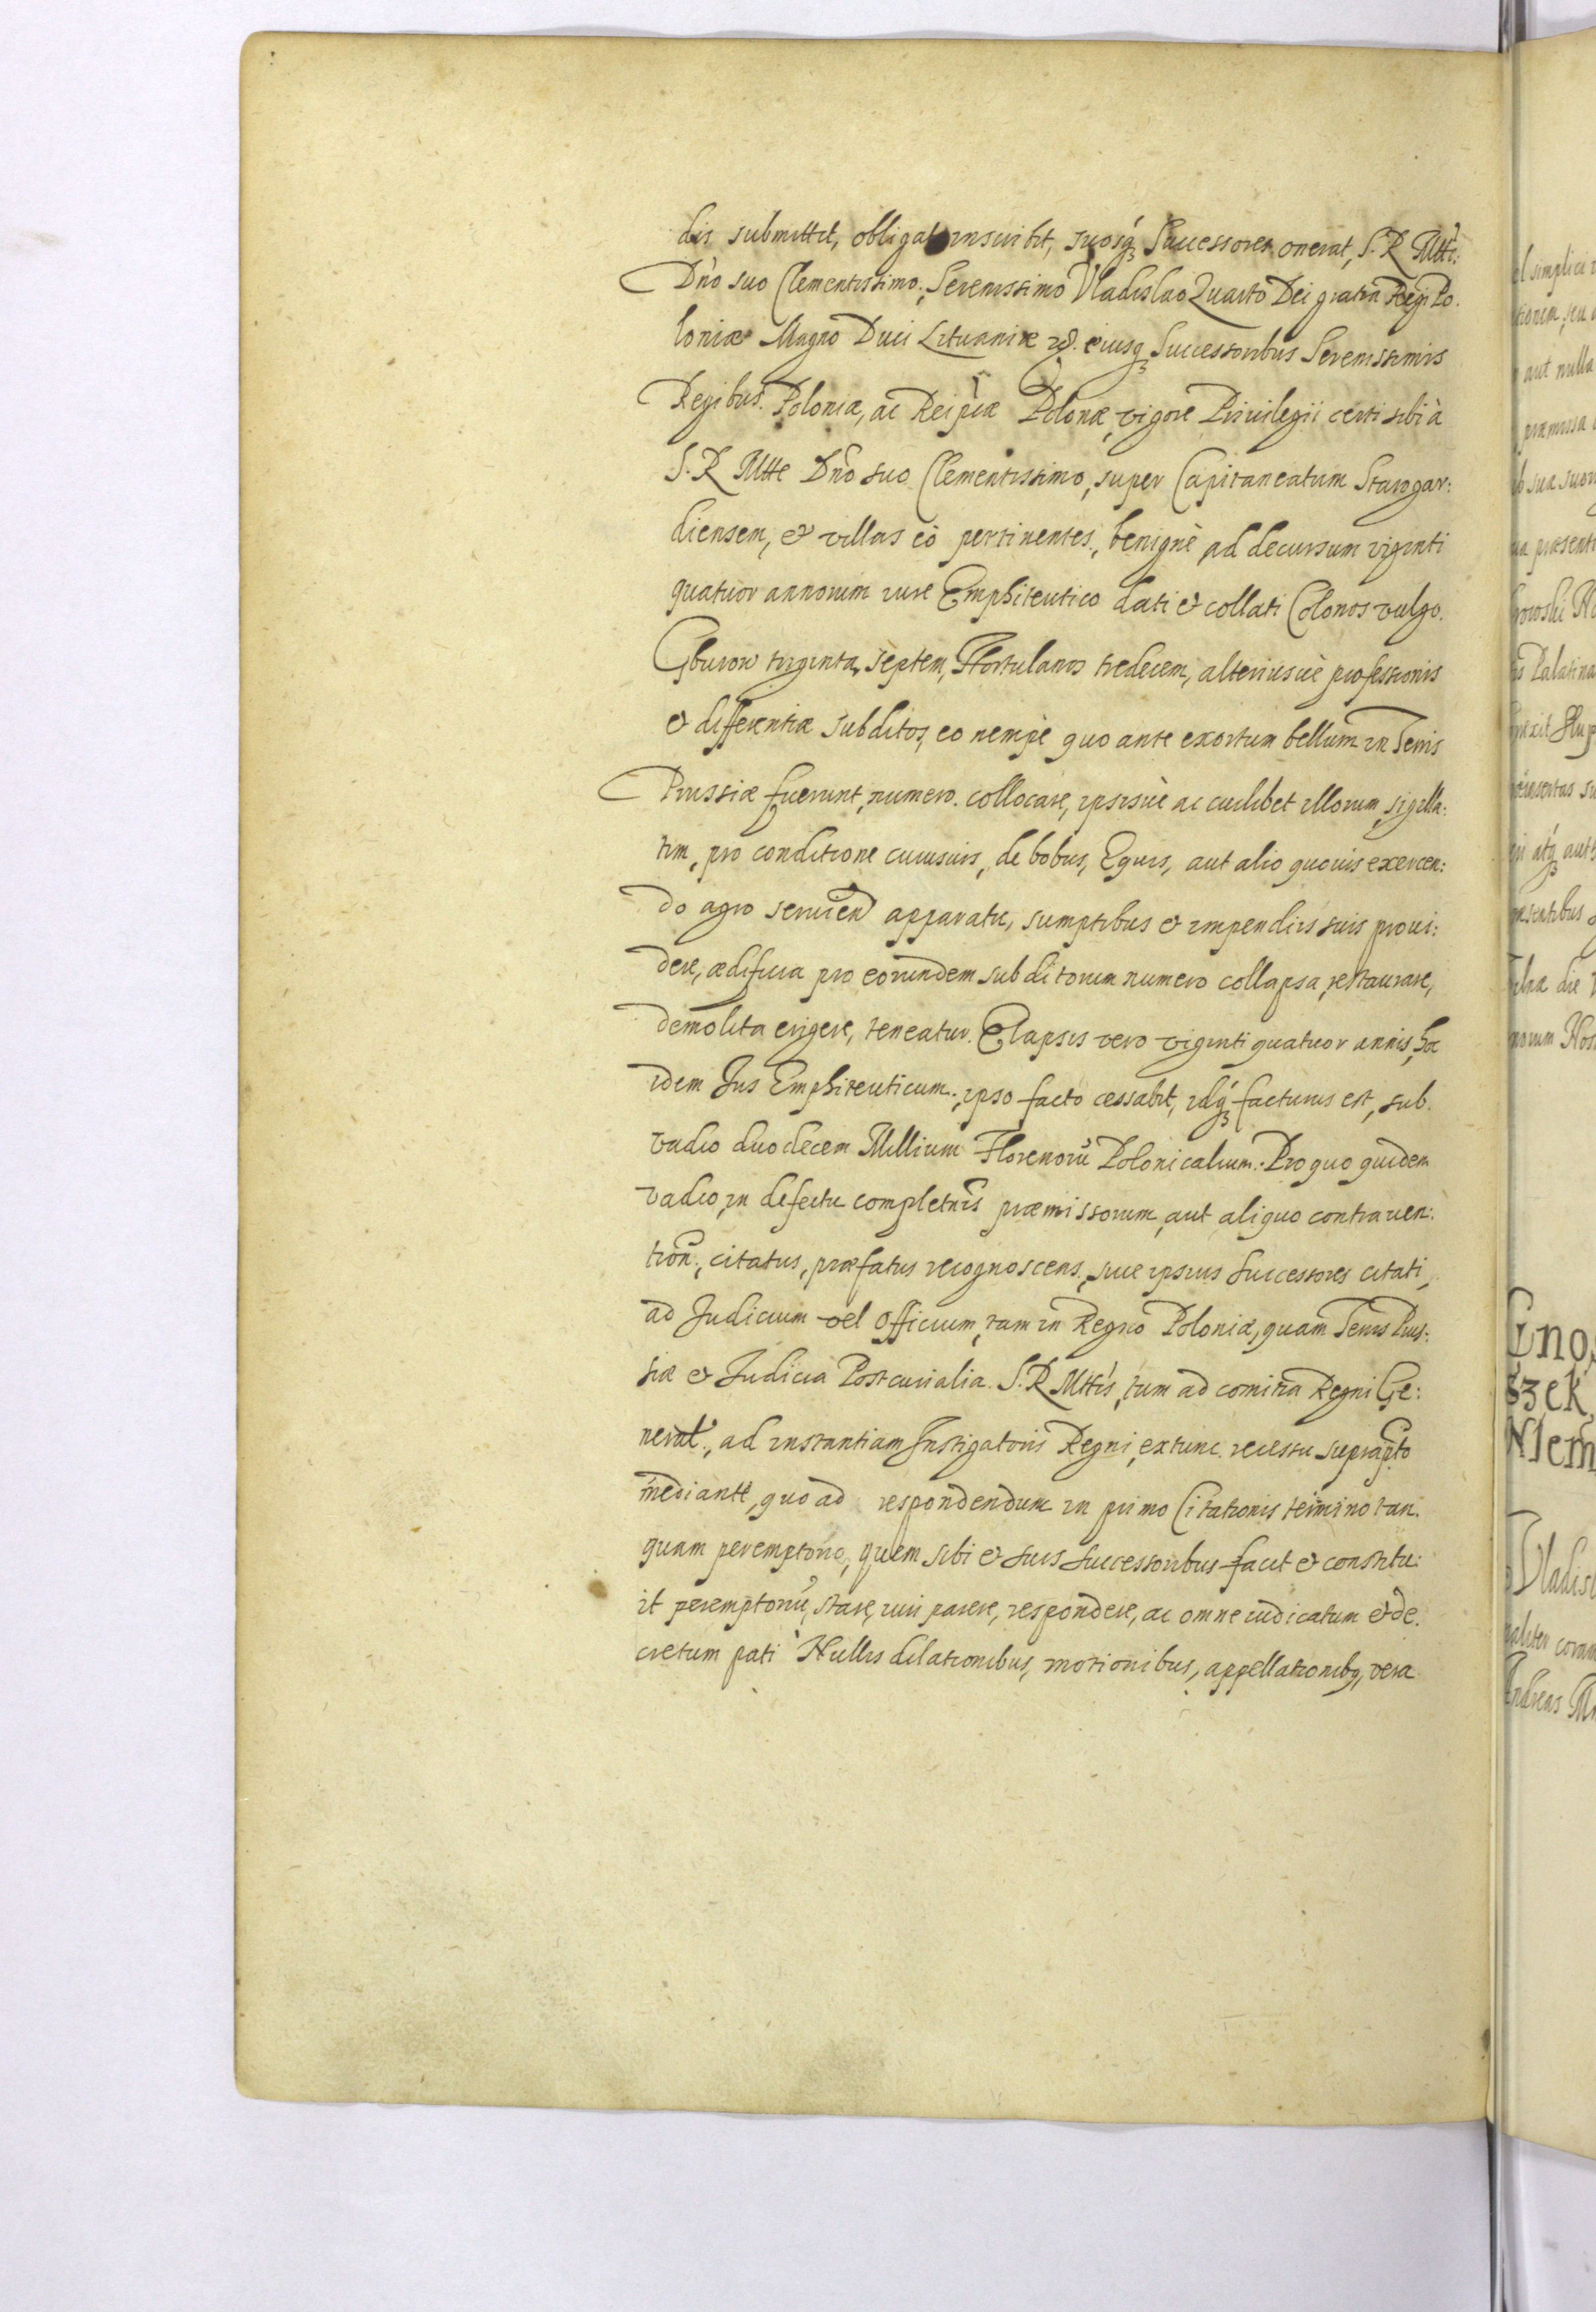 dis submittit, obligat inscribit, suosq3 Successores onerat, S. R. Mtti:
Dno suo Clementissimo, Serenissimo Vladislao Quarto Dei gratia Regi Po.
loniæ Magno Duci Lituaniæ eiusq3 Successoribus Serenissimis
Regibus Poloniæ, ac Reipcæ Polonæ, vigore Privilegii certi sibi à
S. R Mtte Dno suo Clementissimo, super Capitaneatum Starogar:
diensem, et villas eò pertinentes, benignè ad decursum viginti
quatuor annorum iure Emphiteutico dati et collati Colonos vulgo.
Gburow triginta septem, Hortulanos tredecem, alteriusuè professionis
et differentiæ subditos, eo nempè quo ante exortum bellum in Terris
Prussiæ fuerunt, numero collocare, ipsisuè ac cuilibet illorum sigilla:
tim, pro conditione cuiusuis, de bobus, Equis, aut alio quouis exercen:
do agro seruien apparatu, sumptibus et impendiis suis proui:
dere, ædificia pro eorundem subditorum numero collapsa restaurare,
demolita erigere, teneatur. Elapsis vero viginti quatuor annis, hoc
idem Jus Emphiteuticum, ipso facto cessabit, idq3 facturus est, sub.
vadio duodecem Millium Florenorũ Polonicalium. Pro quo quidem
vadio, in defectu completnis præmissorum, aut aliquo contrauen:
tion., citatus, præfatus recognoscens, siue ipsius Successores citati,
ad Judicium vel Officium, tam in Regno Poloniæ, quam Terris Prus:
siæ et Judicia Postcurialia S. R Mttis, tum ad comitia Regni Ge:
neral., ad instantiam Instigatoris Regni, extunc recessu suprapto
mediante, quo ad respondendum in primo Citationis termino tan.
quam peremptorio, quem sibi et suis Successoribus facit et constitu:
it peremptoriũ, stare, iuri parere, respondere, ac omne iudicatum et de.
cretum pati Nullis dilationibus, motionibus, appellationibq, vera